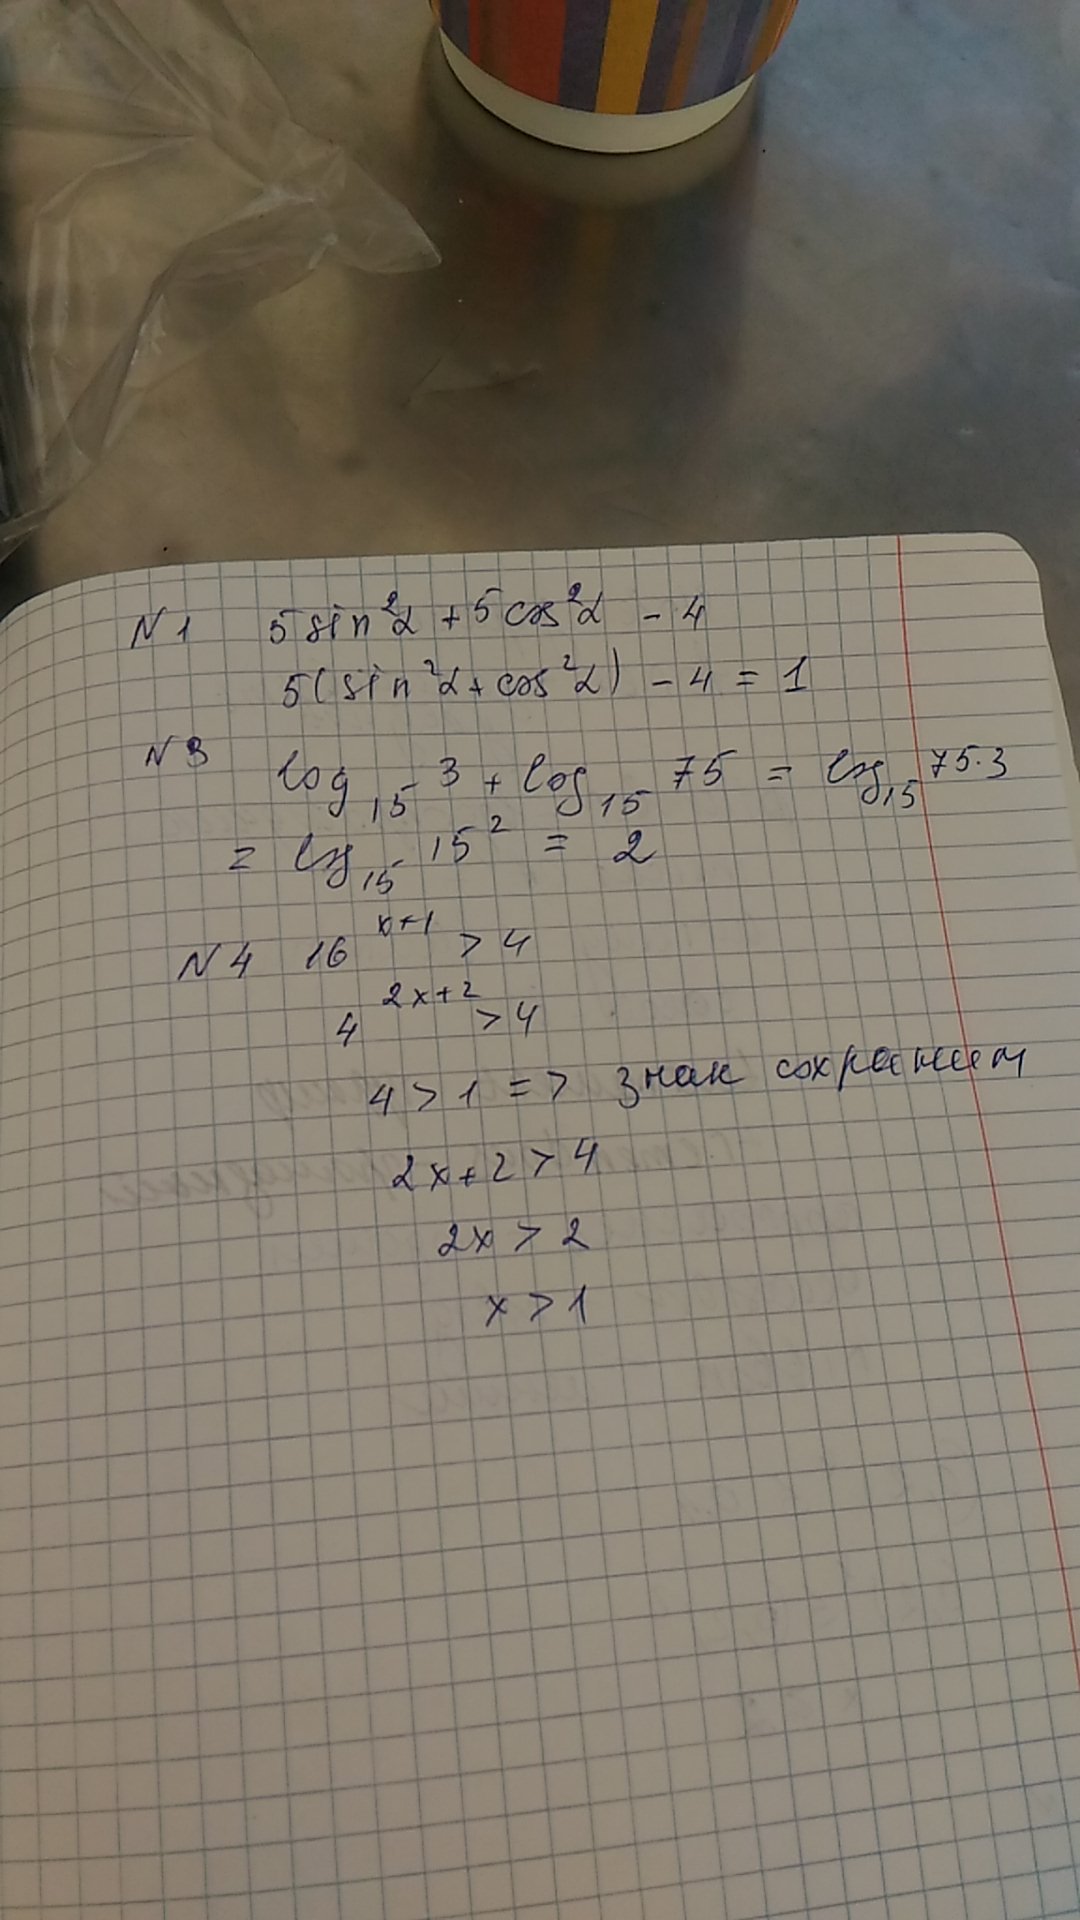 N1 5 sin²α + 5 cos²α - 4
5(sin²α + cos²α) - 4 = 1
N3 log₁₅ 3 + log₁₅ 75 = log₁₅ 75·3
= log₁₅ 15² = 2
N4 16^(x+1) > 4
4^(2x+2) > 4
4 > 1 => знак сохраняем
2x + 2 > 4
2x > 2
x > 1